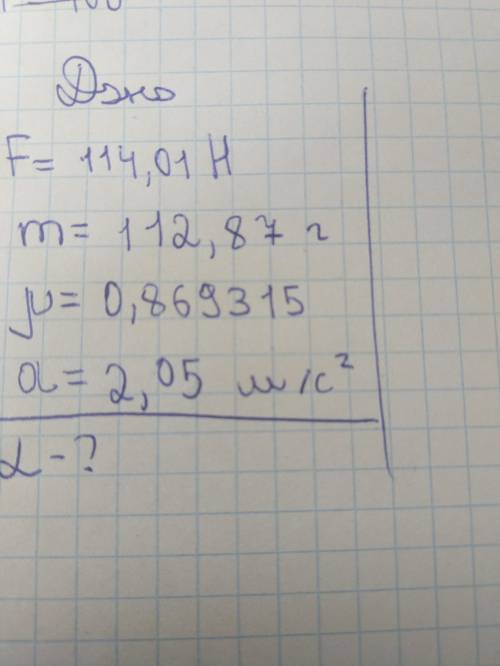 Дано
F= 114,01 Н
m= 112,87 г
μ= 0,869315
a= 2,05 м/с²
α-?